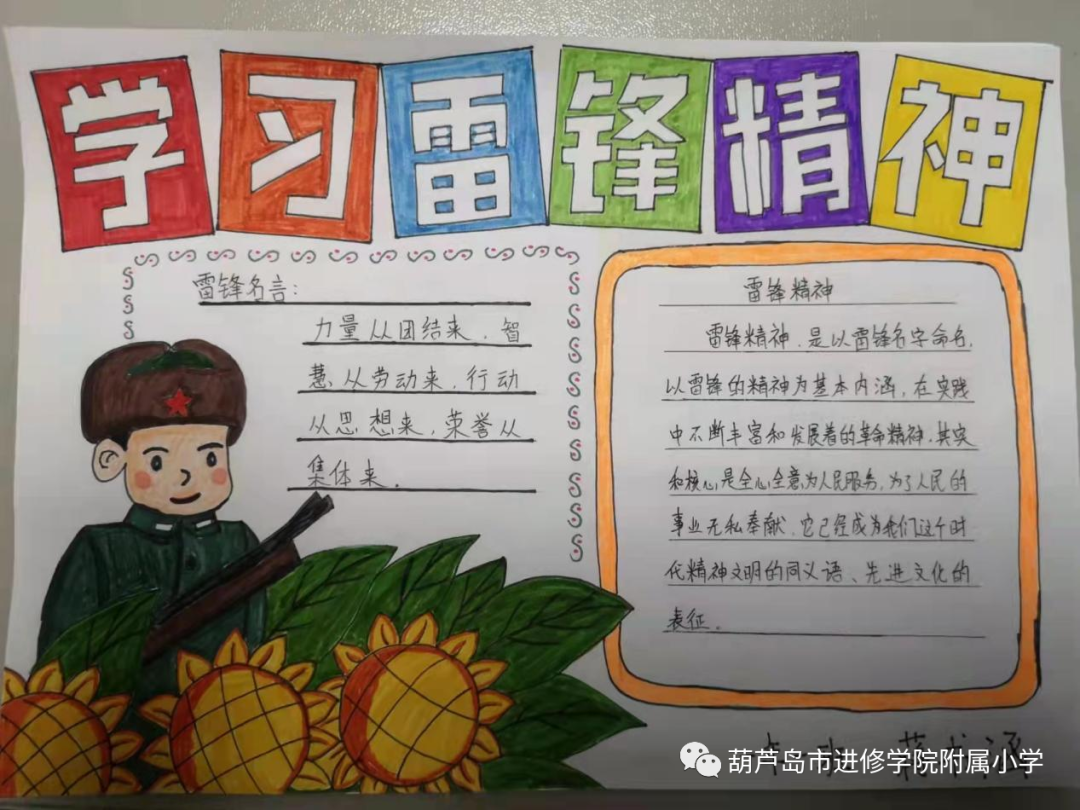 学习雷锋精神
雷锋名言:
力量从团结来，智
慧从劳动来，行动
从思想来，荣誉从
集体来.
雷锋精神
雷锋精神，是以雷锋名字命名，
以雷锋的精神为基本内涵，在实践
中不断丰富和发展着的革命精神，其实
和核心是全心全意为人民服务，为了人民的
事业无私奉献，它已经成为我们这个时
代精神文明的同义语、先进文化的
表征.
葫芦岛市进修学院附属小学